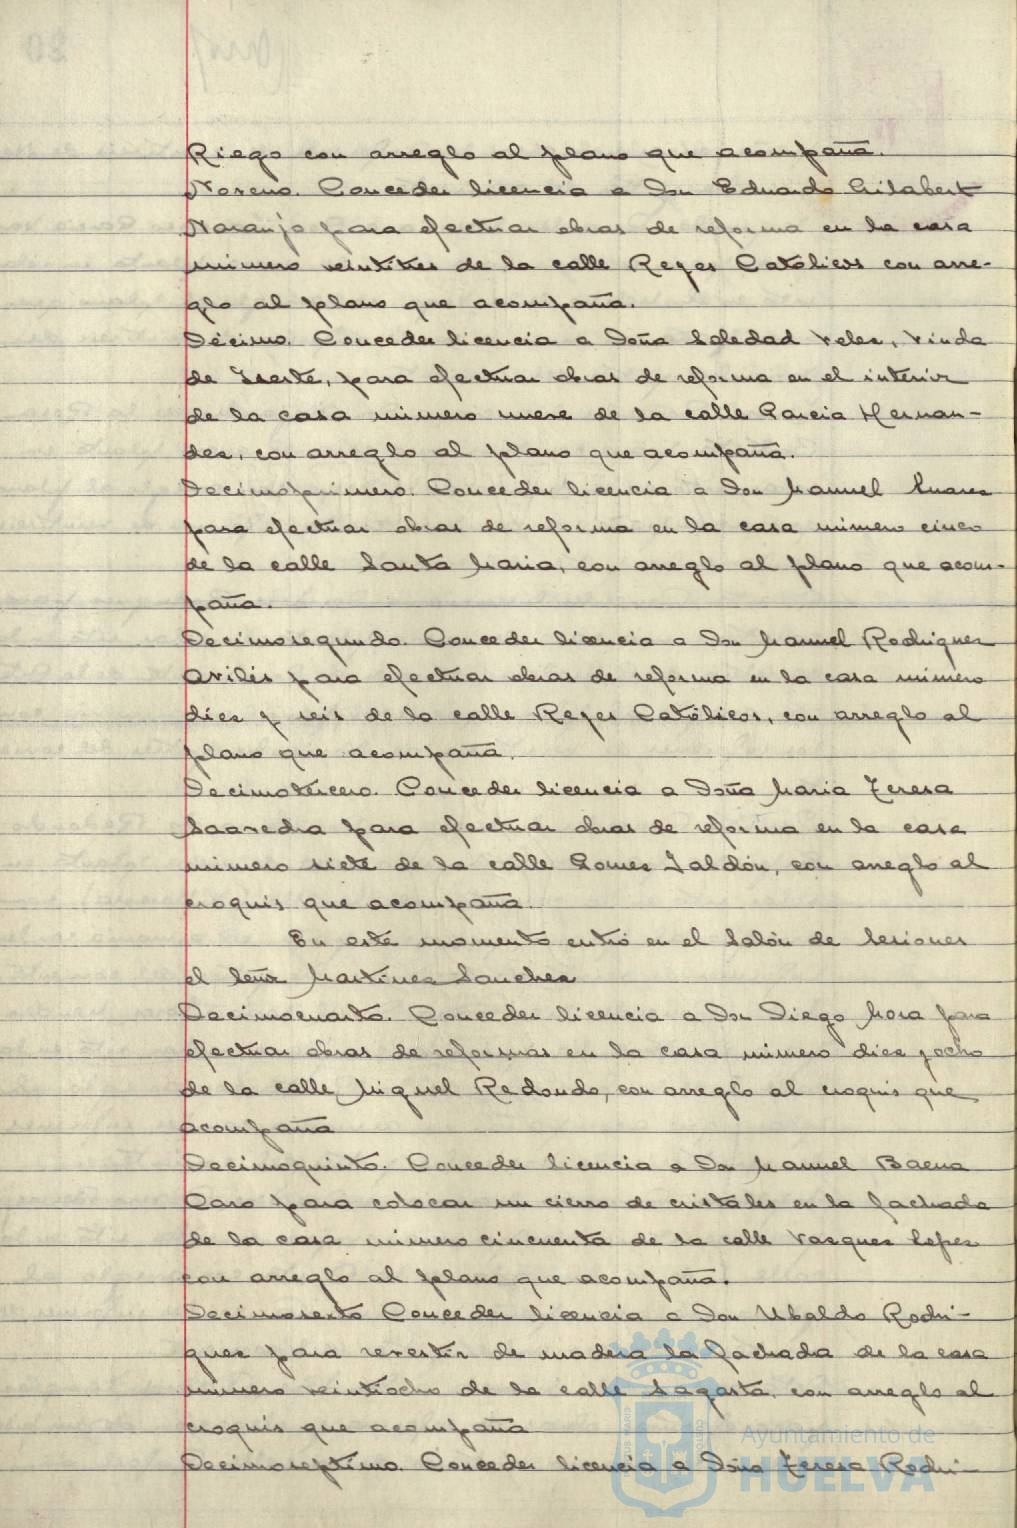 Riego con arreglo al plano que acompaña.
Noveno. Conceder licencia a Don Eduardo Gilabert
Naranjo para efectuar obras de reforma en la casa
número veintitres de la calle Reyes Católicos con arre-
glo al plano que acompaña.
Décimo. Conceder licencia a Doña Soledad Velez, Viuda
de Iserte, para efectuar obras de reforma en el interior
de la casa número nueve de la calle Garcia Hernan-
dez, con arreglo al plano que acompaña.
Decimoprimero. Conceder licencia a Don Manuel Suarez
para efectuar obras de reforma en la casa número cinco
de la calle Santa Maria, con arreglo al plano que acom-
paña.
Decimosegundo. Conceder licencia a Don Manuel Rodriguez
Avilés para efectuar obras de reforma en la casa número
diez y seis de la calle Reyes Católicos, con arreglo al
plano que acompaña.
Decimotercero. Conceder licencia a Doña Maria Teresa
Saavedra para efectuar obras de reforma en la casa
número siete de la calle Gomez Jaldón, con arreglo al
croquis que acompaña.
En este momento entró en el Salón de Sesiones
el Señor Martinez Sanchez
Decimocuarto. Conceder licencia a Don Diego Mora para
efectuar obras de reformas en la casa número diez y ocho
de la calle Miguel Redondo, con arreglo al croquis que
acompaña
Decimoquinto. Conceder licencia a Don Manuel Baena
Caro para colocar un cierro de cristales en la fachada
de la casa número cincuenta de la calle Vazquez Lopez
con arreglo al plano que acompaña.
Decimosexto Conceder licencia a Don Ubaldo Rodri-
guez para revestir de madera la fachada de la casa
número veintiocho de la calle Sagasta, con arreglo al
croquis que acompaña
Decimoseptimo. Conceder licencia a Doña Teresa Rodri-
Ayuntamiento de
HUELVA